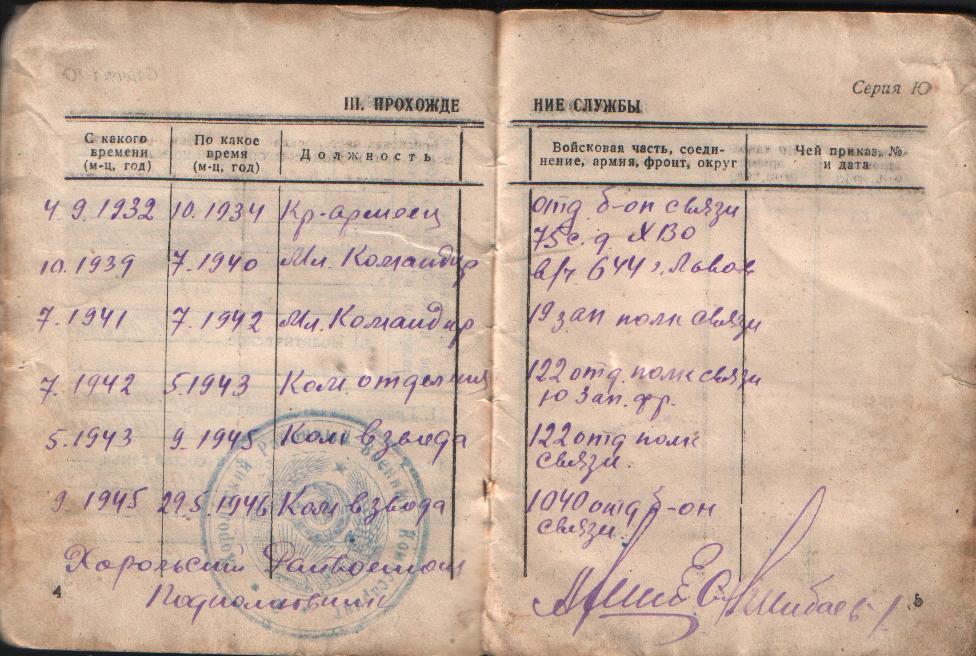 Серия Ю
III. ПРОХОЖДЕ НИЕ СЛУЖБЫ
С какого времени (м-ц, год) По какое время (м-ц, год) Должность Войсковая часть, соеди-нение, армия, фронт, округ Чей приказ, № и дата
4.9.1932 10.1934 Кр-армеец отд. б-он связи
75 с.д. ХВО
10.1939 7.1940 Мл. Командир в/ч 644 г. Львов
7.1941 7.1942 Мл. Командир 19 зап полк связи
7.1942 5.1943 Ком. отделения 122 отд. полк связи
Ю Зап. фр.
5.1943 9.1945 Ком взвода 122 отд полк
связи.
9.1945 29.5.1946 Ком взвода 1040 отд б-он
связи.
Хорольский Райвоенком
Подполковник
4 5